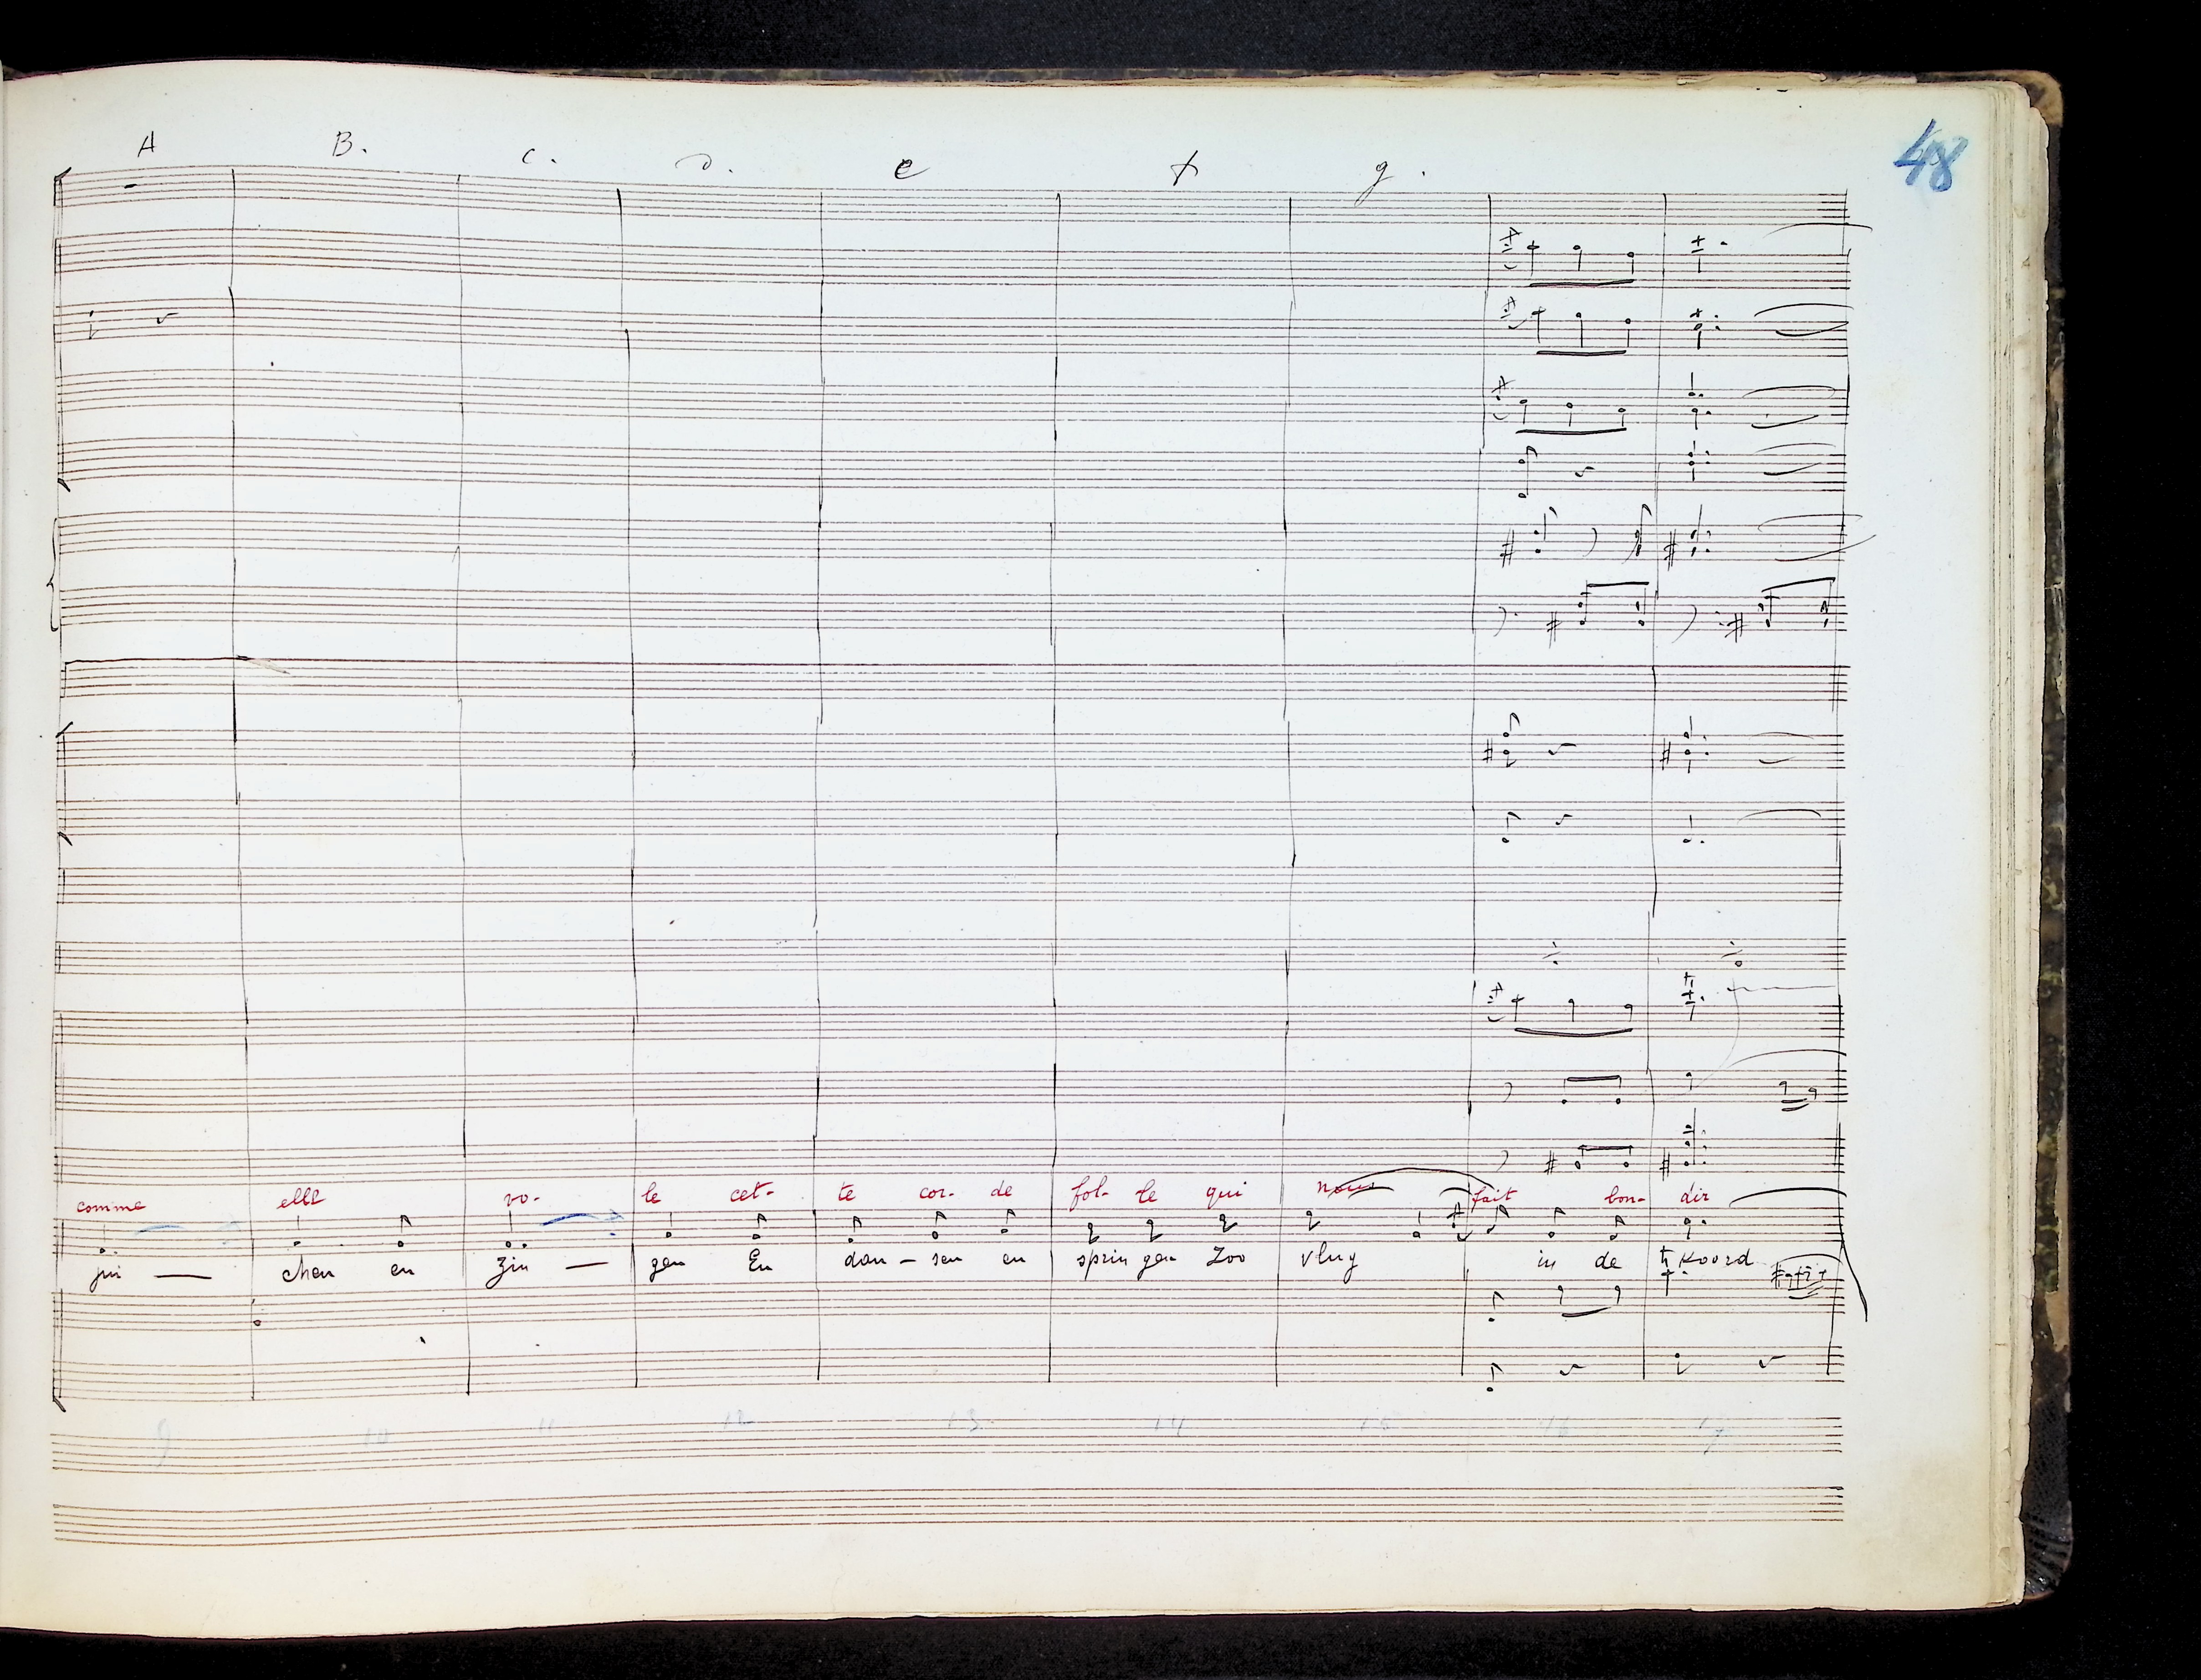 48
A B. c. d. e f g.
comme elle vo- le cet- te cor- de fol- le qui nous fait bon- dir
jui — chen en zin — gen En dan – sen en sprin gen Zoo vlug in de Koord
9 10 11 12 13 14 15 16 17